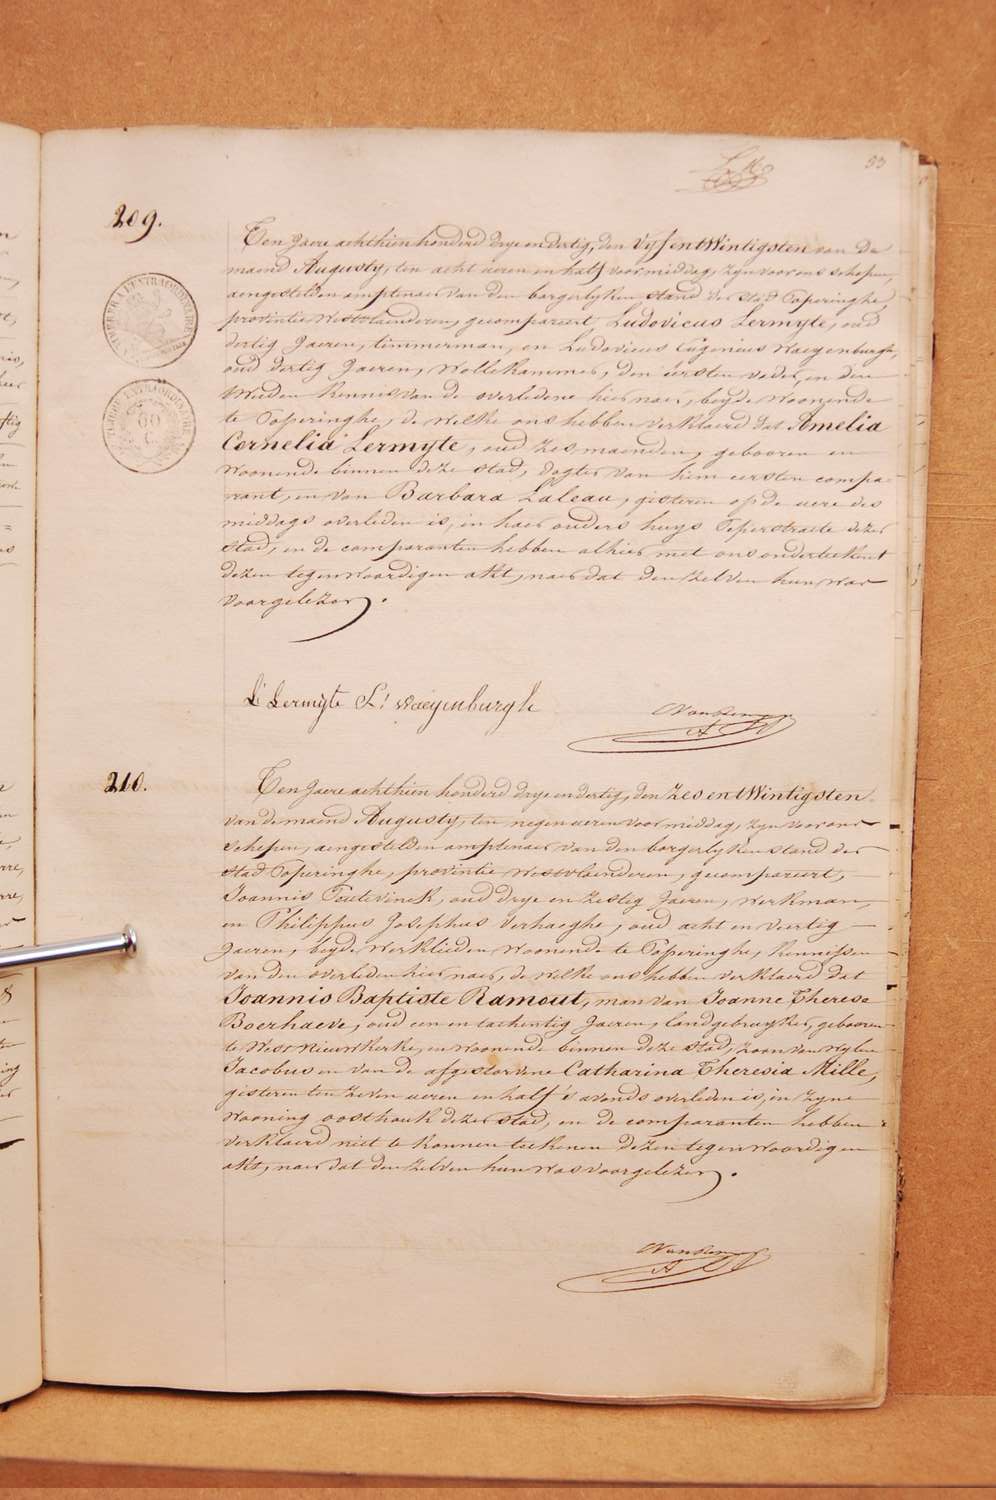 53
209.
Ten Jaere achthien honderd drye en dertig, den Vyf en twintigsten van de
maend Augusty, ten acht ueren en half voormiddag, zyn voor ons schepen,
aengestelden amptenaer van den borgerlyken stand der stad Poperinghe,
provintie Westvlaenderen, gecompareert, Ludovicus Lermyte, oud
dertig Jaeren, timmerman, en Ludovicus Eugenius Waeyenburgh,
oud dertig Jaeren, Wollekammer, den eersten vader, en den
tweeden kennis van de overledene hier naer, beyde woonende
te Poperinghe, de welke ons hebben verklaerd dat Amelia
Cornelia Lermyte, oud zes maenden, gebooren en
woonende binnen deze stad, dogter van hem eersten compa-
rant, en van Barbara Laleau, gisteren op de uere des
middags overleden is, in haer ouders huys Peperstraete dezer
stad, en de comparanten hebben alhier met ons onderteekent
dezen tegenwoordigen akt, naer dat den zelven hun was
voorgelezen.
L. Lermÿte L. Waeÿenburgh
210.
Ten Jaere achthien honderd drye en dertig, den Zes en twintigsten
van de maend Augusty, ten negen ueren voormiddag, zyn voor ons
schepen, aengestelden amptenaer van den borgerlyken stand der
stad Poperinghe, provintie Westvlaenderen, gecompareert,
Joannis Toutevinck, oud drye en zestig Jaeren, werkman,
en Philippus Josephus Verhaeghe, oud acht en veertig
Jaeren, beyde werklieden woonende te Poperinghe, kennissen
van den overleden hier naer, de welke ons hebben verklaerd dat
Joannis Baptiste Ramout, man van Joanne Therese
Boerhaeve, oud een en tachentig Jaeren, landgebruyker, gebooren
te West Nieuwkerke, en woonende binnen deze stad, zoon van wylen
Jacobus en van de afgestorvene Catharina Theresia Mille,
gisteren ten zeven ueren en half s'avonds overleden is, in zyne
wooning oosthouk dezer stad, en de comparanten hebben
verklaerd niet te konnen teekenen dezen tegenwoordigen
akt, naer dat den zelven hun was voorgelezen.